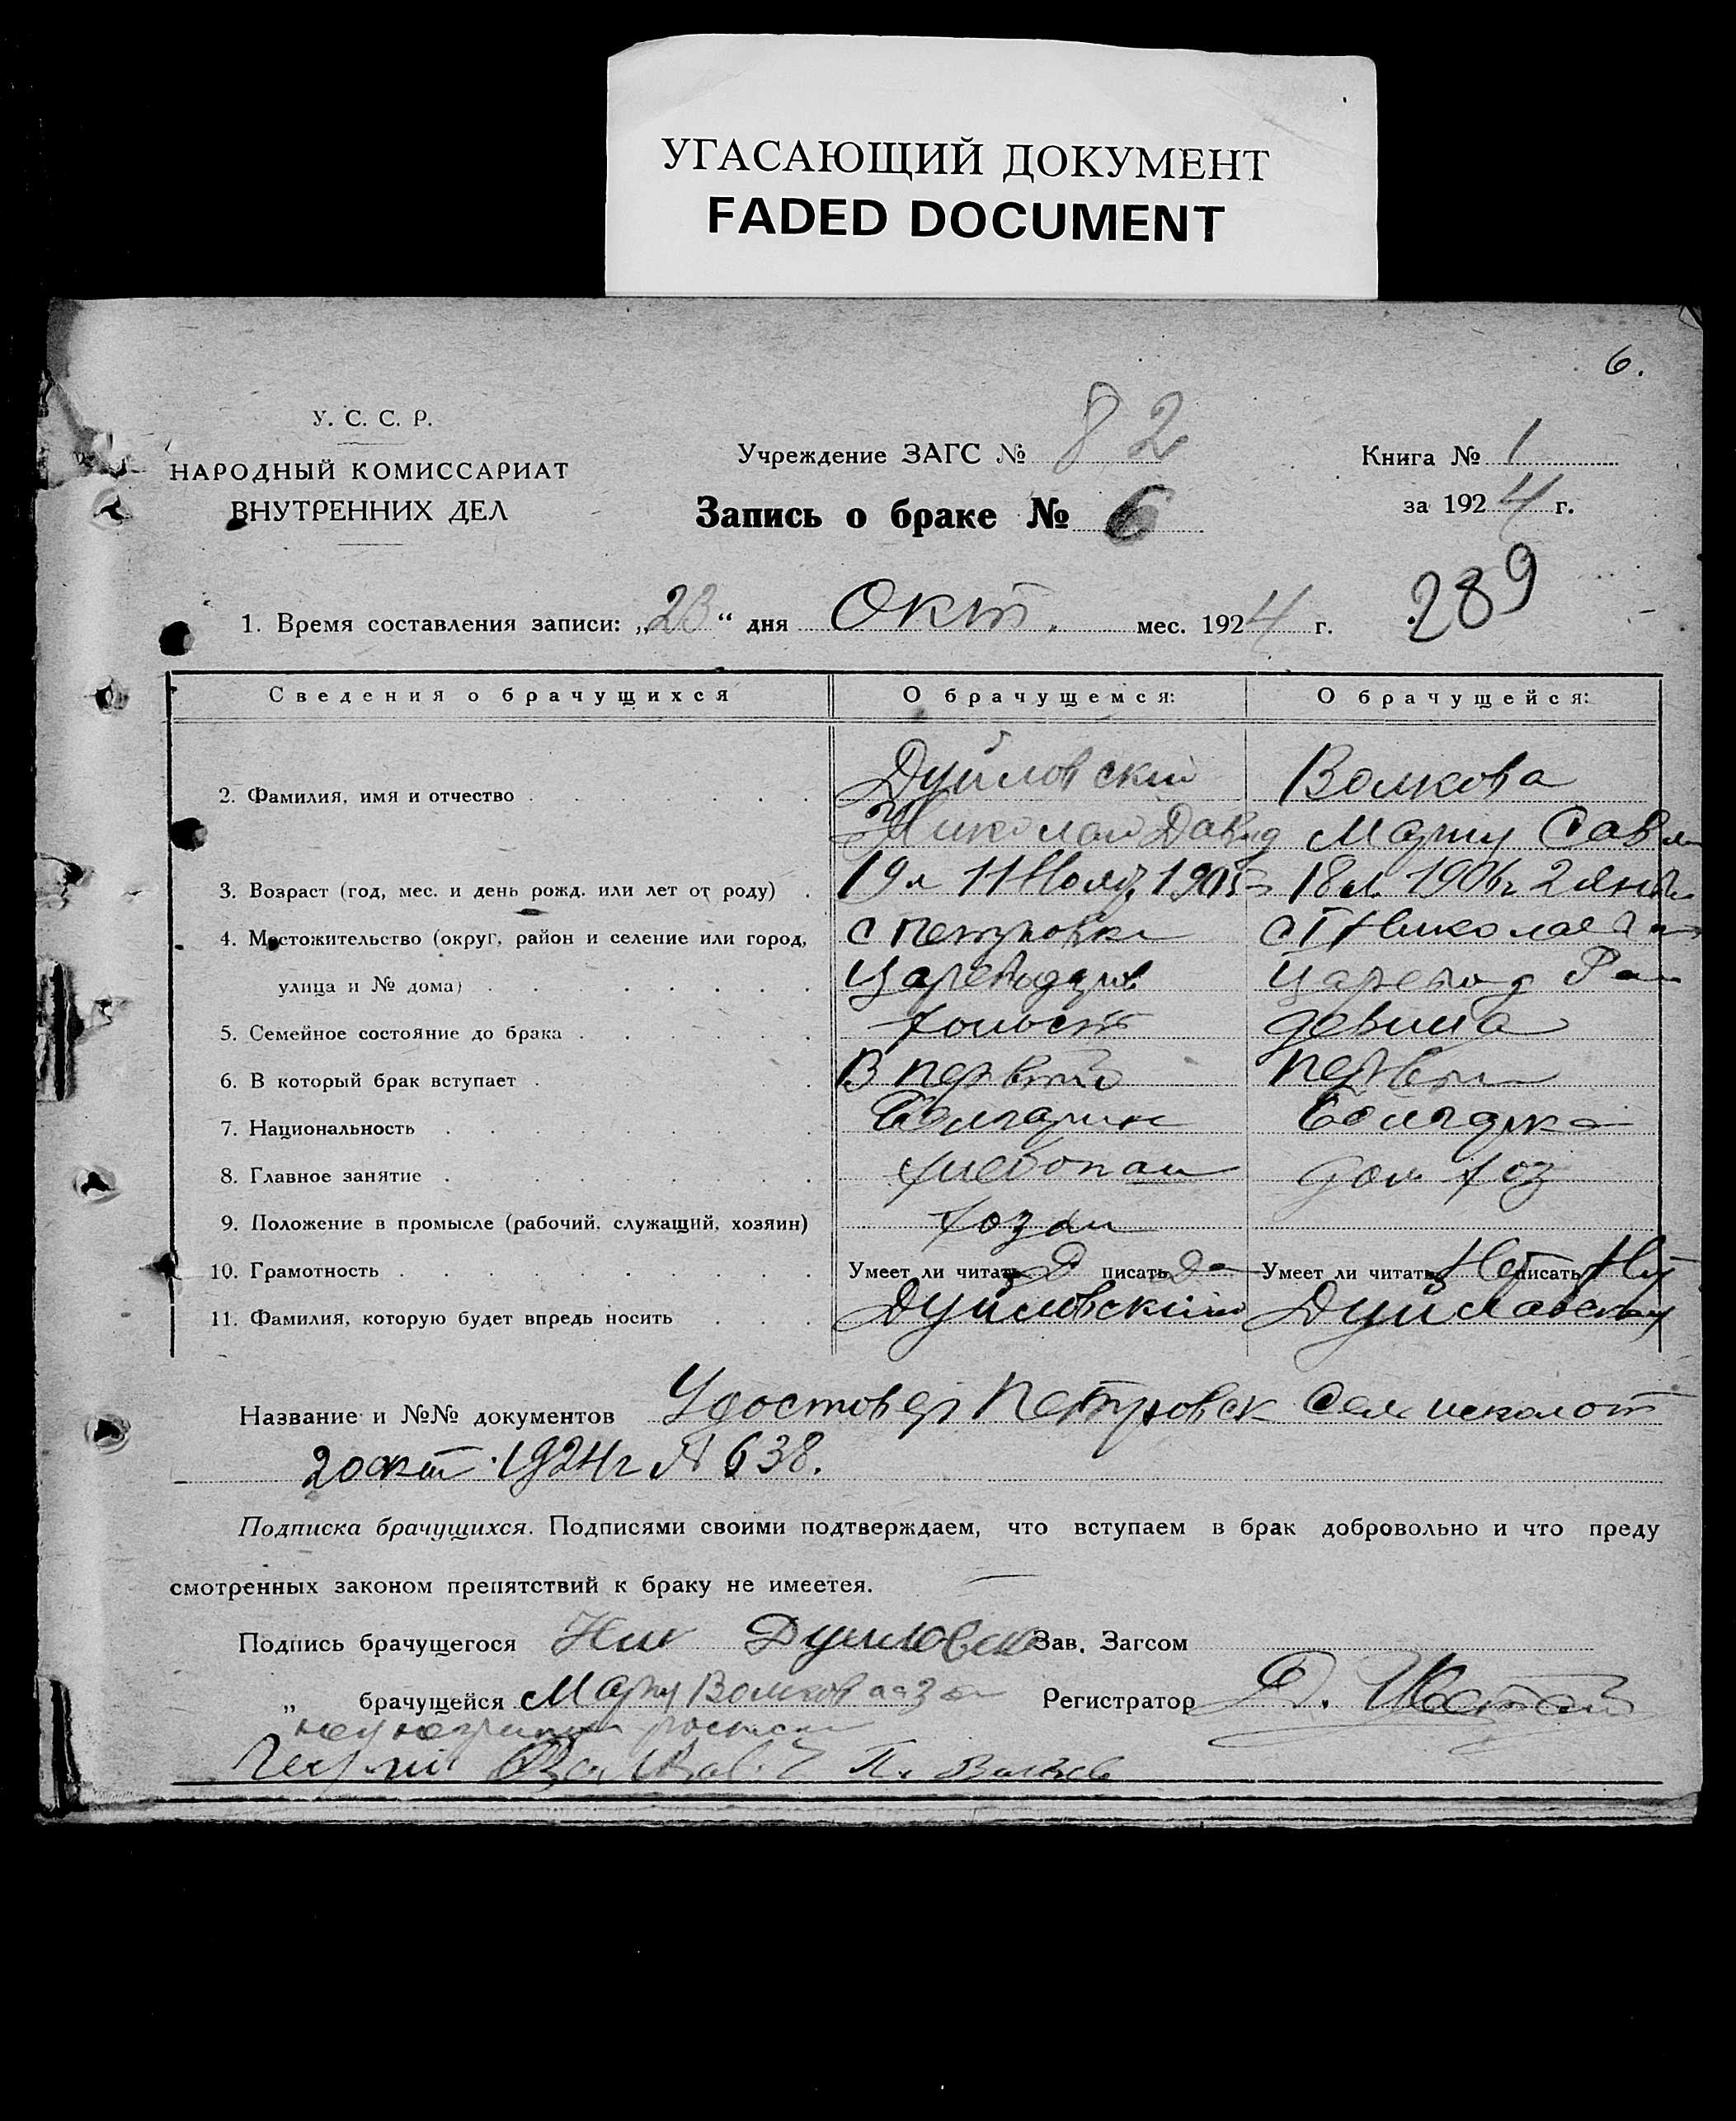 УГАСАЮЩИЙ ДОКУМЕНТ
FADED DOCUMENT
6.
У. С. С. Р.
НАРОДНЫЙ КОМИССАРИАТ
ВНУТРЕННИХ ДЕЛ
Учреждение ЗАГС № 82
Запись о браке № 6
Книга № 1
за 1924 г.
289
1. Время составления записи: „23“ дня Окт. мес. 1924 г.
Сведения о брачущихся О брачущемся: О брачущейся:
2. Фамилия, имя и отчество Дуйловский Волкова
Николай Давид Марии Савл
3. Возраст (год, мес. и день рожд. или лет от роду) 19 л 11 1905 18 л. 1906 г 2 янв
4. Местожительство (округ, район и селение или город, с Петровка с
улица и № дома) Цареводаров Царевод
5. Семейное состояние до брака холост девица
6. В который брак вступает В первый первый
7. Национальность Болгарин Болгарка
8. Главное занятие хлебопаш дом хоз
9. Положение в промысле (рабочий, служащий, хозяин) хозяин
10. Грамотность Умеет ли читать Да писать Да Умеет ли читать Нет писать Нет
11. Фамилия, которую будет впредь носить Дуйловский Дуйловская
Название и №№ документов Удостовер Петровск Сельисполком от
20 окт. 1924 г № 638.
Подписка брачущихся. Подписями своими подтверждаем, что вступаем в брак добровольно и что преду
смотренных законом препятствий к браку не имеетея.
Подпись брачущегося Ник Дуйловск Зав. Загсом
„ брачущейся Мария Волкова а за Регистратор